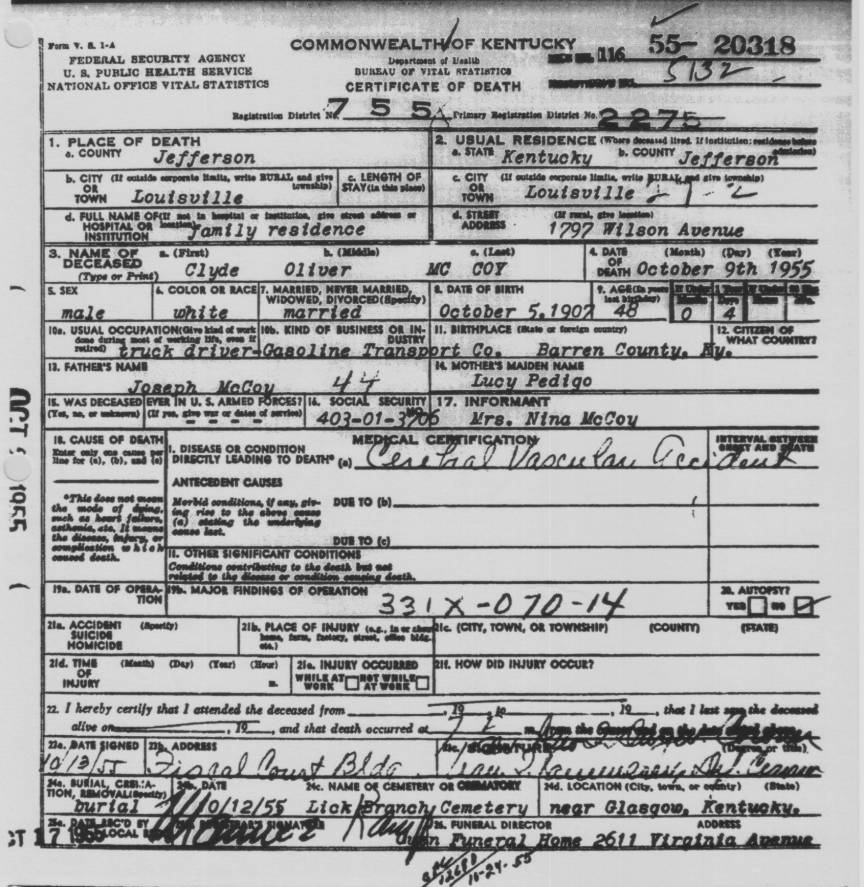 Form V. S. 1-A
COMMONWEALTH OF KENTUCKY
116 55- 20318
FEDERAL SECURITY AGENCY
Department of Health
U. S. PUBLIC HEALTH SERVICE
BUREAU OF VITAL STATISTICS
5132
NATIONAL OFFICE VITAL STATISTICS
CERTIFICATE OF DEATH
Registration District No. 755 Primary Registration District No. 2275
1. PLACE OF DEATH
a. COUNTY Jefferson
2. USUAL RESIDENCE (Where deceased lived. If institution: residence before admission)
a. STATE Kentucky b. COUNTY Jefferson
b. CITY (If outside corporate limits, write RURAL and give township)
OR
TOWN Louisville
c. LENGTH OF
STAY (in this place)
c. CITY (If outside corporate limits, write RURAL and give township)
OR
TOWN Louisville
d. FULL NAME OF (If not in hospital or institution, give street address or location)
HOSPITAL OR
INSTITUTION family residence
d. STREET (If rural, give location)
ADDRESS 1797 Wilson Avenue
3. NAME OF DECEASED
(Type or Print)
a. (First) b. (Middle) c. (Last)
Clyde Oliver MC COY
4. DATE OF DEATH (Month) (Day) (Year)
October 9th 1955
5. SEX
male
6. COLOR OR RACE
white
7. MARRIED, NEVER MARRIED,
WIDOWED, DIVORCED (Specify)
married
8. DATE OF BIRTH
October 5, 1907
9. AGE (In years last birthday)
48
If Under 1 Year
Months Days
0 4
10a. USUAL OCCUPATION (Give kind of work done during most of working life, even if retired)
10b. KIND OF BUSINESS OR INDUSTRY
truck driver-Gasoline Transport Co.
11. BIRTHPLACE (State or foreign country)
Barren County, Ky.
12. CITIZEN OF
WHAT COUNTRY?
13. FATHER'S NAME
Joseph McCoy 44
14. MOTHER'S MAIDEN NAME
Lucy Pedigo
15. WAS DECEASED EVER IN U. S. ARMED FORCES?
(Yes, no, or unknown) (If yes, give war or dates of service)
16. SOCIAL SECURITY NO.
403-01-3706
17. INFORMANT
Mrs. Nina McCoy
18. CAUSE OF DEATH
Enter only one cause per
line for (a), (b), and (c)
MEDICAL CERTIFICATION
INTERVAL BETWEEN
ONSET AND DEATH
I. DISEASE OR CONDITION
DIRECTLY LEADING TO DEATH* (a) Cerebral Vascular Accident
*This does not mean
the mode of dying,
such as heart failure,
asthenia, etc. It means
the disease, injury, or
complication which
caused death.
ANTECEDENT CAUSES
Morbid conditions, if any, giving
rise to the above cause
(a) stating the underlying
cause last.
DUE TO (b)
DUE TO (c)
II. OTHER SIGNIFICANT CONDITIONS
Conditions contributing to the death but not
related to the disease or condition causing death.
19a. DATE OF OPERATION
19b. MAJOR FINDINGS OF OPERATION
331X-070-14
20. AUTOPSY?
YES NO
21a. ACCIDENT (Specify)
SUICIDE
HOMICIDE
21b. PLACE OF INJURY (e.g., in or about
home, farm, factory, street, office bldg.
etc.)
21c. (CITY, TOWN, OR TOWNSHIP) (COUNTY) (STATE)
21d. TIME (Month) (Day) (Year) (Hour)
OF
INJURY m.
21e. INJURY OCCURRED
WHILE AT WORK NOT WHILE AT WORK
21f. HOW DID INJURY OCCUR?
22. I hereby certify that I attended the deceased from , 19 to , 19 , that I last saw the deceased
alive on , 19 , and that death occurred at
23a. DATE SIGNED
10/13/55
23b. ADDRESS
Fiscal Court Bldg.
23c. SIGNATURE (Degree or title)
24a. BURIAL, CREMATION, REMOVAL (Specify)
burial
24b. DATE
10/12/55
24c. NAME OF CEMETERY OR CREMATORY
Lick Branch Cemetery
24d. LOCATION (City, town, or county) (State)
near Glasgow, Kentucky.
25a. DATE REC'D BY LOCAL REG.
OCT 17 1955
REGISTRAR'S SIGNATURE
26. FUNERAL DIRECTOR ADDRESS
Funeral Home 2611 Virginia Avenue
12680
10-24-55